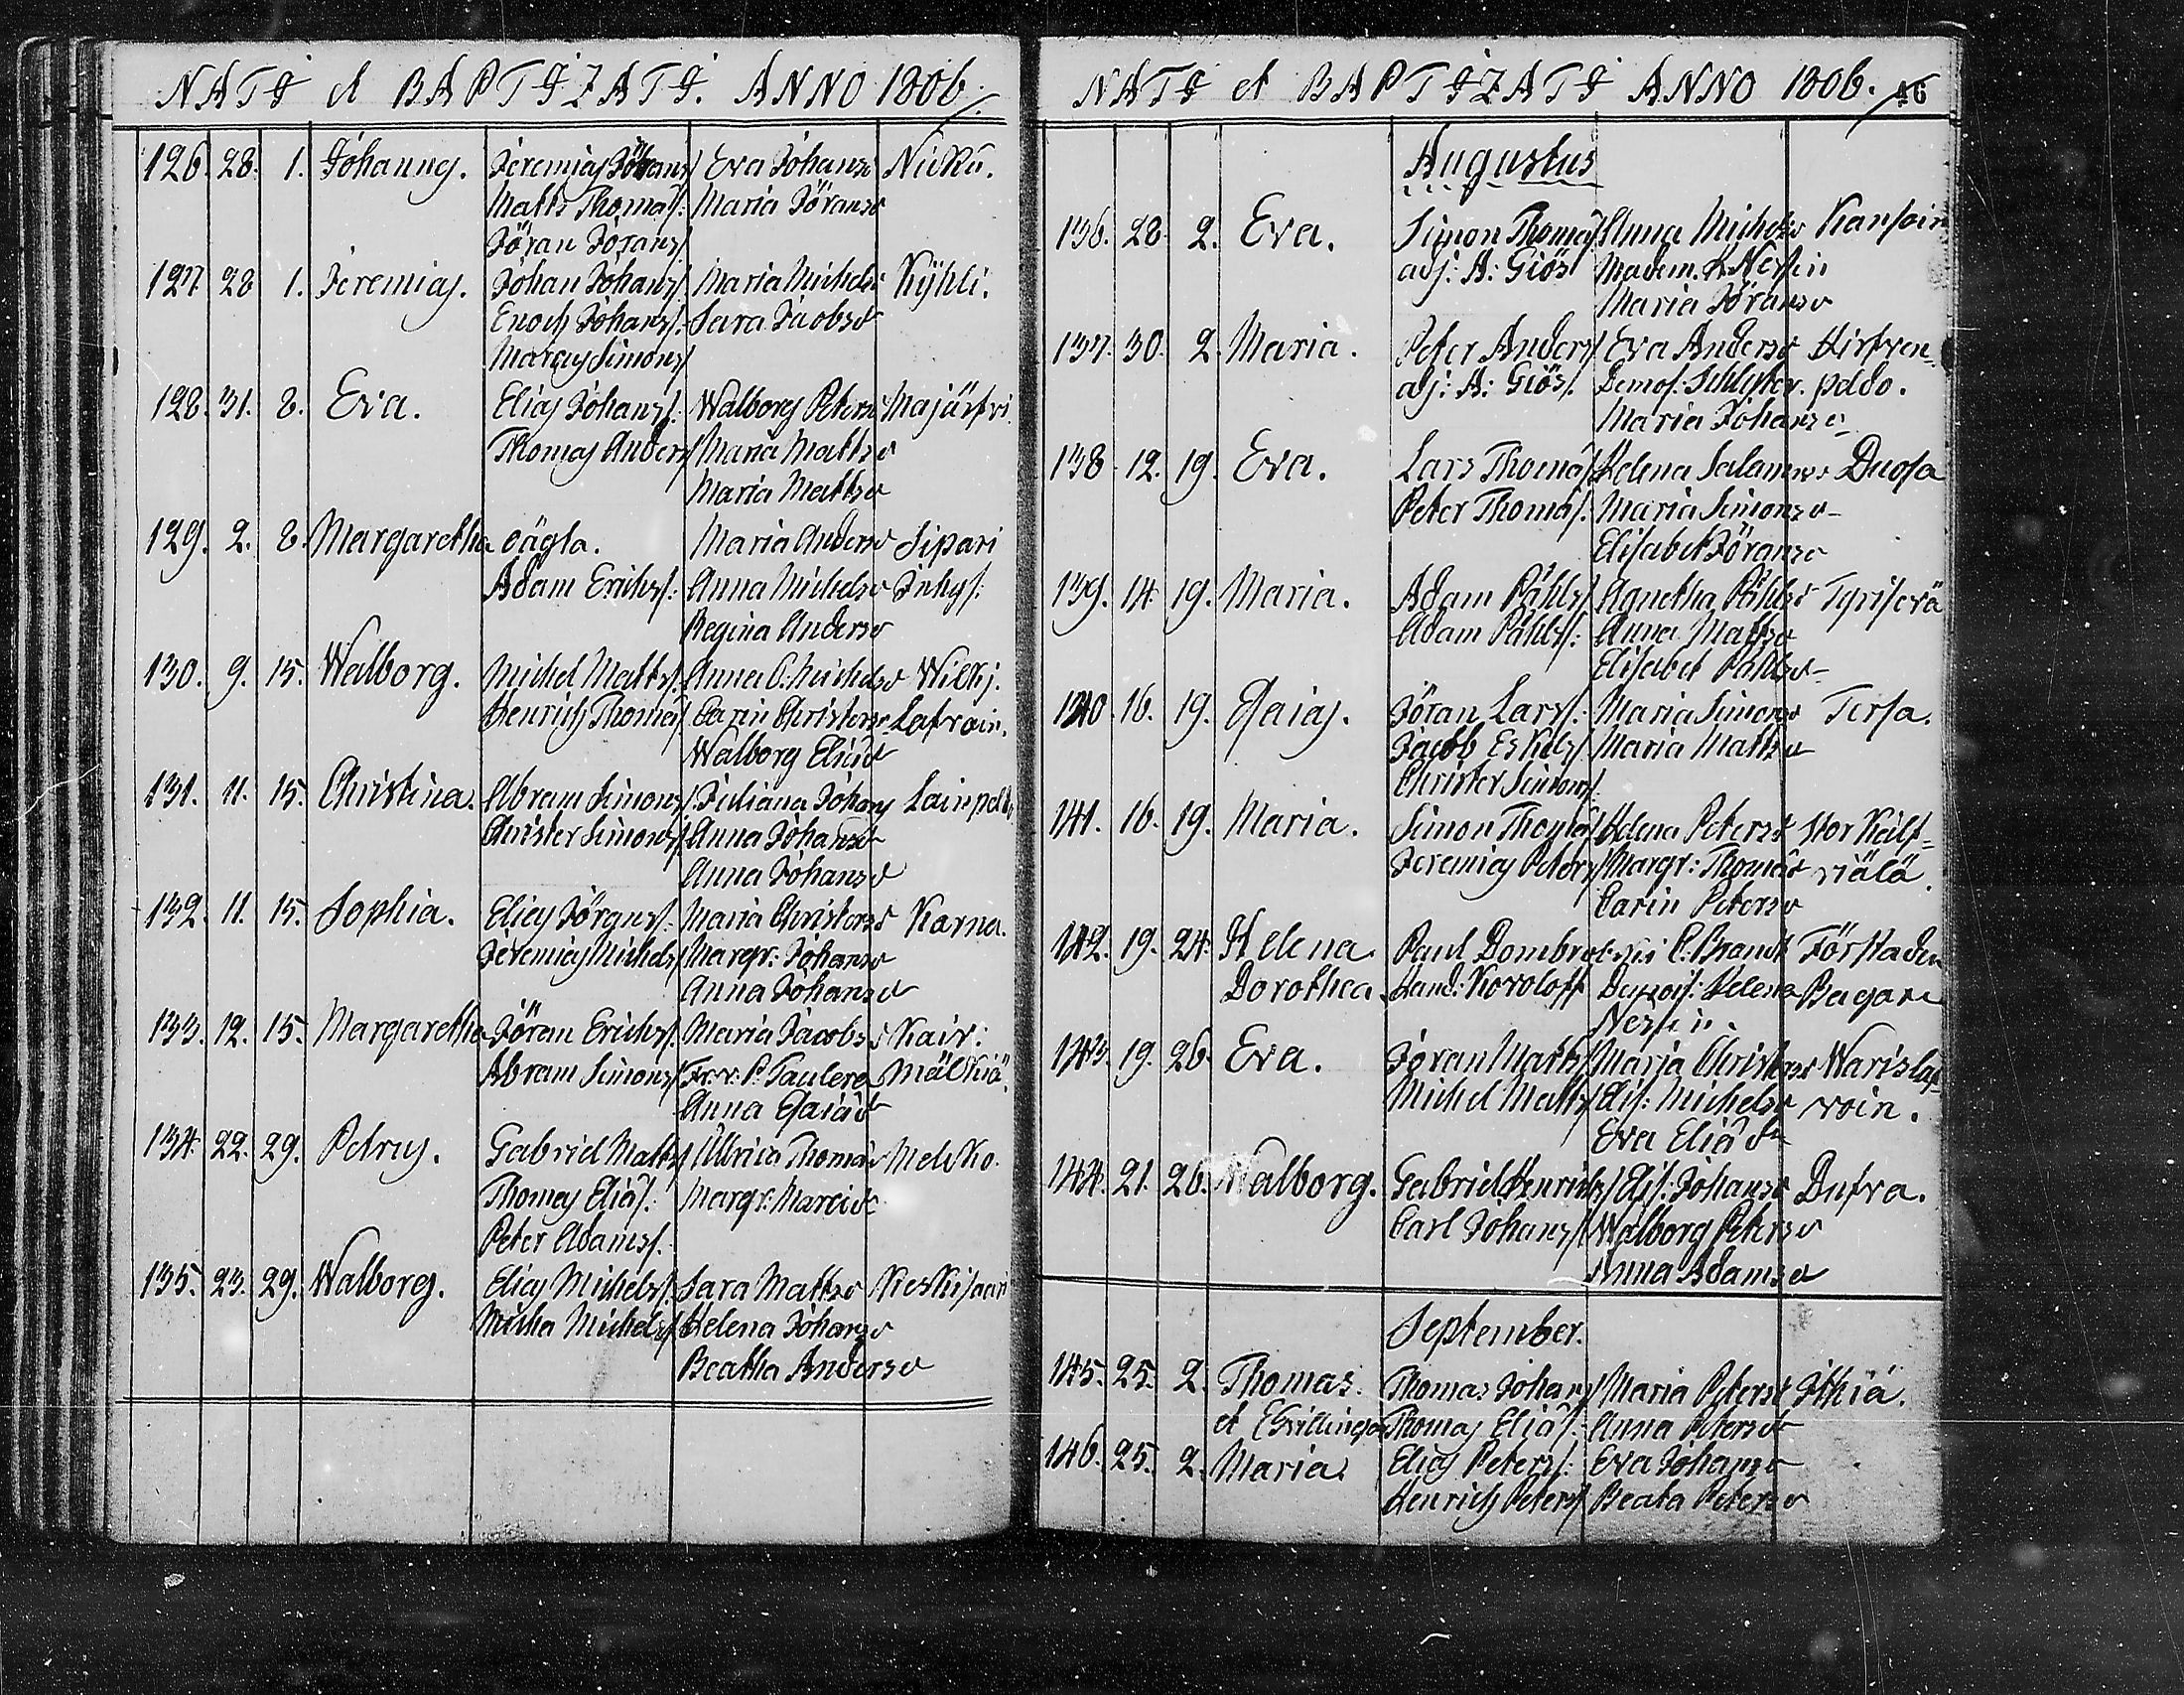 NATI et BAPTIZATI. ANNO 1806.
126. 28. 1. Johannes. Jeremias Johans/ Eva Johansd Nicku.
Matts Thomas/: Maria Jöransd
Jöran Jorans/
127 28 1. Jeremias. Johan Johans/: Maria Michelsd Kyhli.
Enoch Johans/: Sara Jacobsd
Marcus Simons/
128. 31. 8. Eva. Elias Johans/: Walborg Petersd Majärfvi
Thomas Anders/ Maria Mattsd
Maria Mattsd
129. 2. 8. Margaretha oägta. Maria Andersd Sipari
Adam Erichs/: Anna Michelsd Inhys/:
Regina Andersd
130. 9. 15. Walborg. Michel Matts/: Anna C: Michelsd Wilkj.
Henrich Thomas/ Carin Christersd Lafvoin.
Walborg Eliæd
131. 11. 15. Christina. Abram Simons/ Juliana Johans Lainpeldo
Christer Simons/ Anna Johansd
Anna Johansd
132. 11. 15. Sophia. Elias Jörgens/: Maria Christersd Karna.
Jeremias Michels/ Margr: Johansd
Anna Johansd
133. 12. 15. Margaretha Jöran Erichs/: Maria Jacobsd Kair:
Abram Simons/ Fr: P: Taulera Mälkiä.
Anna Esaiæd
134. 22. 29. Petrus. Gabriel Matts/ Ullrica Thomasd Melkko.
Thomas Elias/: Margr: Marcid
Peter Adams/.
135. 23. 29. Walborg. Elias Michels/: Sara Mattsd Kieskisaari
Micha Michels/ Helena Johansd
Beatha Andersd
NATI et BAPTIZATI ANNO 1806. 46
Augustus
136. 28. 2. Eva. Simon Thomas/ Anna Michelsd Kansoin
adj: A: Giös Madem. H: Nessin
Maria Jöransd
137. 30. 2. Maria. Peter Anders/ Eva Andersd Hirfven-
adj: A: Giös/. Demos/: Schlyter. peldo.
Maria Johansd
138 12. 19. Eva. Lars Thomas/ Helena Salamonsd Duosa
Peter Thomas/: Maria Simonsd
Elisabet Jöransd
139. 14 19. Maria. Adam Påhls/ Agnetha Påhlsd Tyriserä
Adam Påhls/: Anna Mattsd
Elisabet Påhlsd
140. 16. 19. Esaias. Jöran Lars/: Maria Simonsd Tersa.
Jacob Eskels/ Maria Mattsd
Christer Simons/.
141. 16. 19. Maria. Simon Thomas/ Helena Petersd Stor Kälf-
Jeremias Peters/ Margr: Thomasd riälä.
Carin Petersd
142. 19. 24. Helena Paul Dombrowski C: Brandt Förstaden
Dorothea Hand: Koroloff Demois/: Helena Bagare
Nessin.
143. 19. 26 Eva. Jöran Matts/ Maria Christersd Warislaf-
Michel Matts/ Elis/: Michelsd voin.
Eva Eliæd
144. 21. 26. Walborg. Gabriel Henrichs/ Elis/: Johansd Dufva.
Carl Johans/ Walborg Petersd
Anna Adamsd
September.
145. 25. 2. Thomas. Thomas Johans/ Maria Petersd Ithiä.
et (Tvillingar Thomas Elias/: Anna Petersd
146. 25. 2. Maria. Elias Peters/: Eva Johansd
Henrich Peters/ Beata Petersd